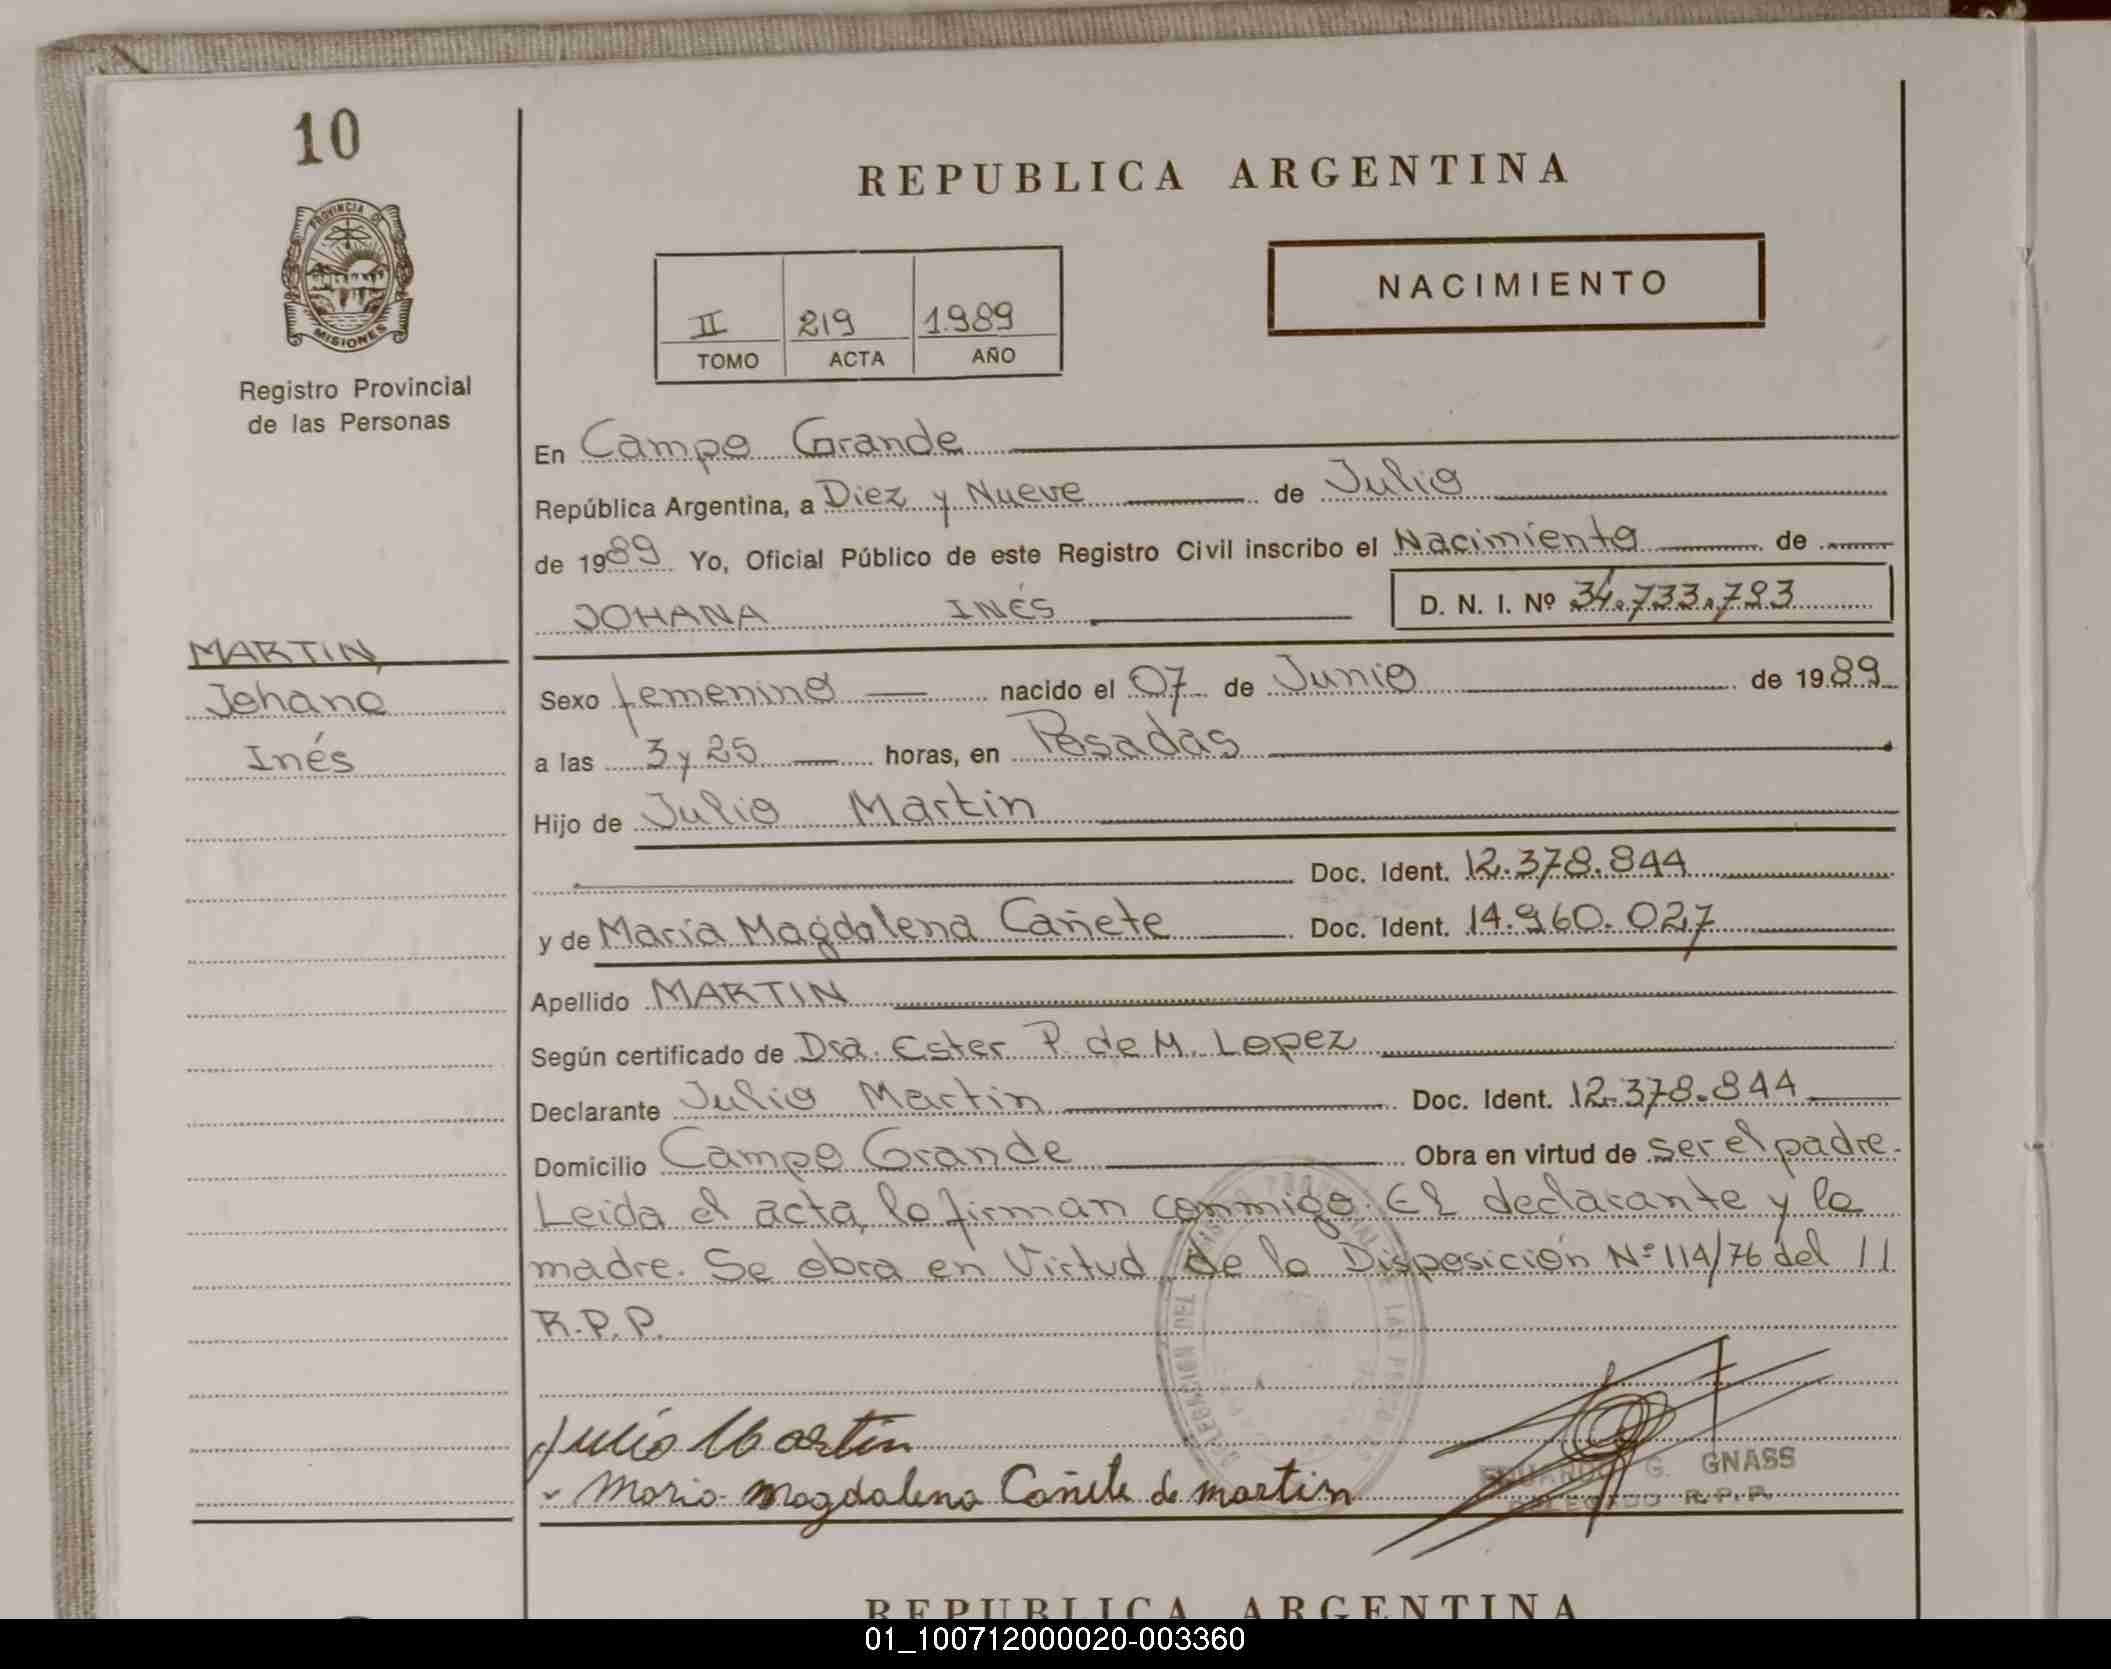 10
PROVINCIA DE
MISIONES
Registro Provincial
de las Personas
REPUBLICA ARGENTINA
II 219 1.989
TOMO ACTA AÑO
NACIMIENTO
En Campo Grande
República Argentina, a Diez y Nueve de Julio
de 1989 Yo, Oficial Público de este Registro Civil inscribo el Nacimiento de
JOHANA INÉS D. N. I. Nº 34.733.793
MARTIN,
Johana
Inés
Sexo femenino nacido el 07 de Junio de 1989
a las 3 y 25 horas, en Posadas
Hijo de Julio Martin
Doc. Ident. 12.378.844
y de María Magdalena Cañete Doc. Ident. 14.960.027
Apellido MARTIN
Según certificado de Dra. Ester P. de M. Lopez
Declarante Julio Martin Doc. Ident. 12.378.844
Domicilio Campo Grande Obra en virtud de ser el padre.
Leida el acta, la firman conmigo. El declarante y la
madre. Se obra en Virtud de la Disposición Nº 114/76 del 11
R.P.P.
Julio Martin
Maria Magdalena Cañete de martin
EDUARDO G. GNASS
DELEGADO R.P.P.
REPUBLICA ARGENTINA
01_100712000020-003360